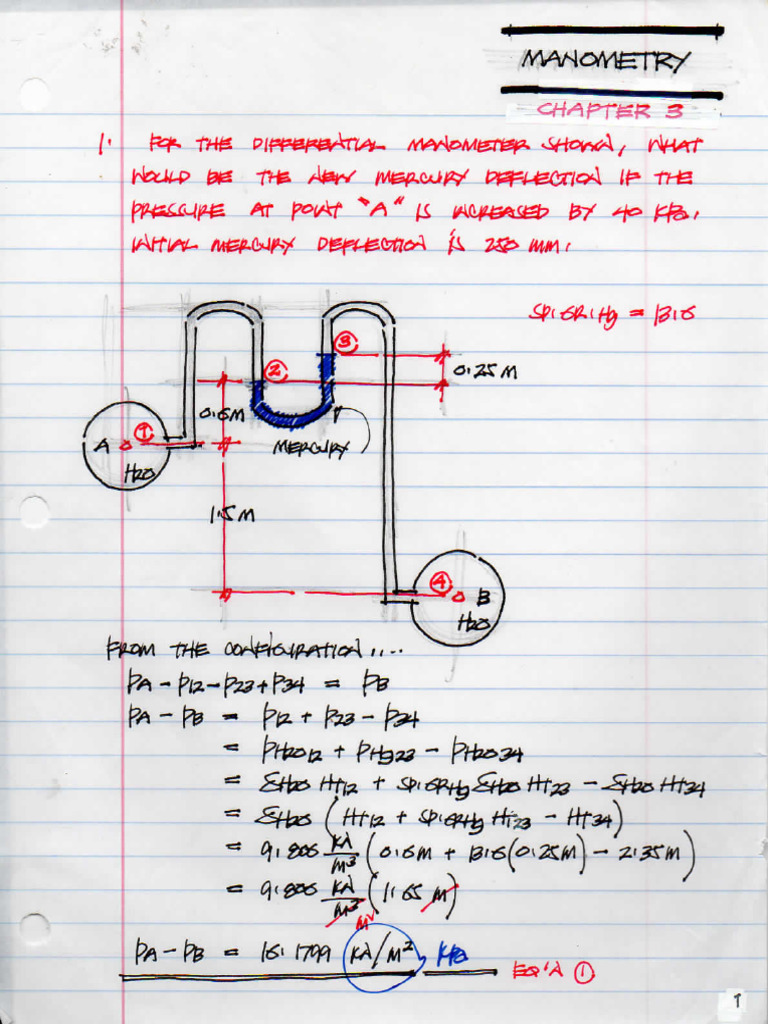 MANOMETRY
CHAPTER 3
1. FOR THE DIFFERENTIAL MANOMETER SHOWN, WHAT
WOULD BE THE NEW MERCURY DEFLECTION IF THE
PRESSURE AT POINT "A" IS INCREASED BY 40 KPa.
INITIAL MERCURY DEFLECTION IS 250 MM.
SP.GR.Hg = 13.6
3
2
0.25 M
0.6M
1
A
H2O
MERCURY
1.5M
4
B
H2O
FROM THE CONFIGURATION....
PA - P12 - P23 + P34 = PB
PA - PB = P12 + P23 - P34
= PH2O12 + PHg23 - PH2O34
= γH2O HT12 + SP.GR.Hg γH2O HT23 - γH2O HT34
= γH2O (HT12 + SP.GR.Hg HT23 - HT34)
= 9.806 KN/M³ (0.6M + 13.6(0.25M) - 2.35M)
= 9.806 KN/M³ (1.65 M)
M²
PA - PB = 16.1799 KN/M² KPa EQ'N 1
1